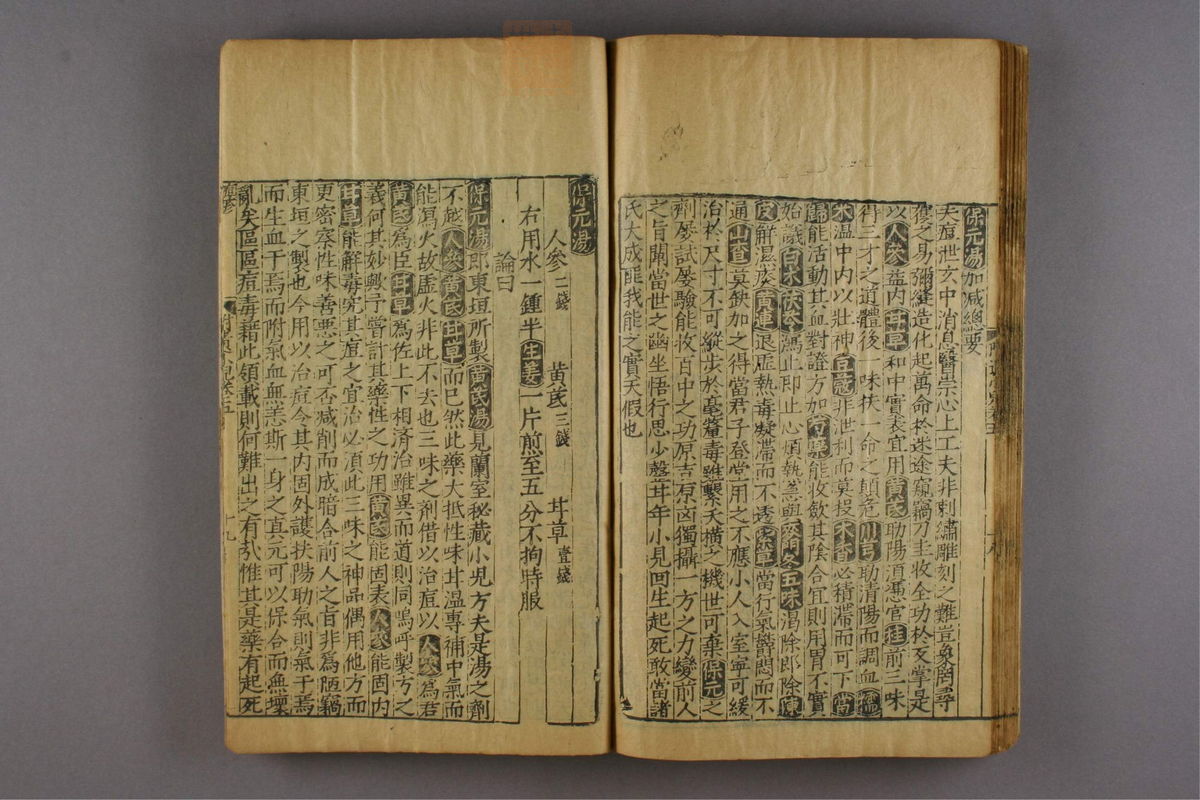 保元湯加減總要
夫痘泄玄中消息醫崇心上工夫非刺繡雕刻之難豈象罔尋
獲之易彌縫造化起萬命於迷途窺竊刀圭收全功於反掌是
以人參益內甘草和中實表宜用黃芪助陽須憑官桂前三味
得三才之道體後一味扶一命之顛危川芎助清陽而調血糯
米溫中內以壯神豆蔻非泄利而莫投木香必積滯而可下當
歸能活動其血對證方加芍藥能收斂其陰合宜則用胃不實
始議白朮茯苓渴止即止心煩熱甚與麥冬五味渴除即除陳
皮解濕痰黃連退虛熱毒凝滯而不透紫草當行氣鬱悶而不
通山查莫缺加之得當君子登堂用之不應小人入室寧可緩
治於尺寸不可縱步於毫釐毒雖繫天橫之機世可棄保元之
劑屢試屢驗能收百中之功原吉原凶獨攝一方之力變前人
之旨闡當世之幽坐悟行思少罄廿年小見回生起死敢當諸
氏大成匪我能之實天假也
保元湯
人參二錢 黃芪三錢 甘草壹錢
右用水一鍾半生姜一片煎至五分不拘時服
論曰
保元湯即東垣所製黃芪湯見蘭室秘藏小兒方夫是湯之劑
不越人參黃芪甘草而已然此藥大抵性味甘溫專補中氣而
能瀉火故虛火非此不去也三味之劑借以治痘以人參為君
黃芪為臣甘草為佐上下相済治雖異而道則同嗚呼製方之
義何其妙歟予嘗計其藥性之功用黃芪能固表人參能固內
甘草能解毒究其痘之宜治必須此三味之神品偶用他方而
更密察性味善惡之可否減削而成暗合前人之旨非為陋竊
東垣之製也今用以治痘令其內固外護扶陽助氣則氣于焉
而生血于焉而附氣血無恙斯一身之真元可以保合而無壞
亂矣區區痘毒藉此領載則何難出之有哉惟其是藥有起死
十九